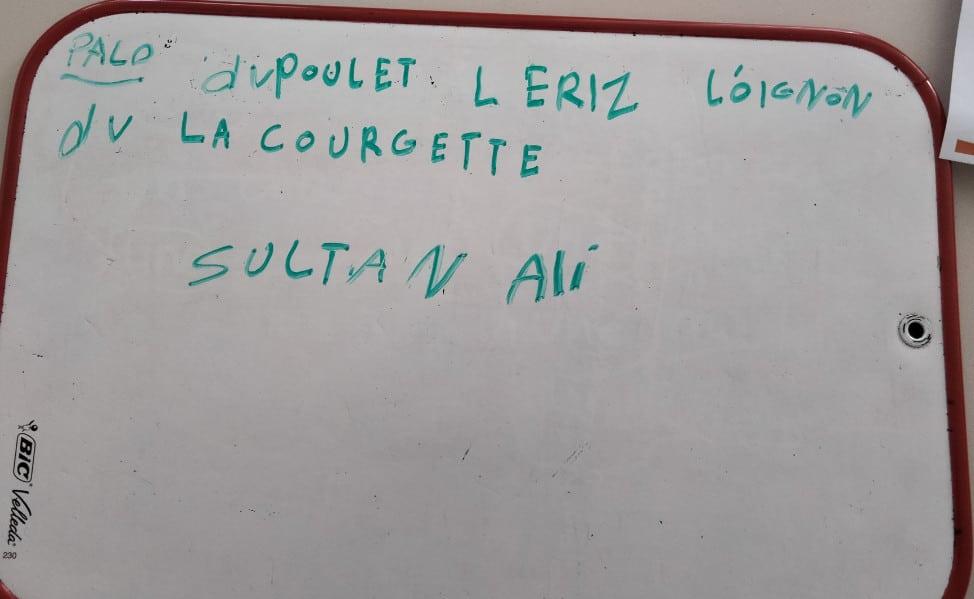 PALO duPOULET L ERIZ L'OIGNON
du LA COURGETTE
SULTAN Ali
BIC Velleda
230